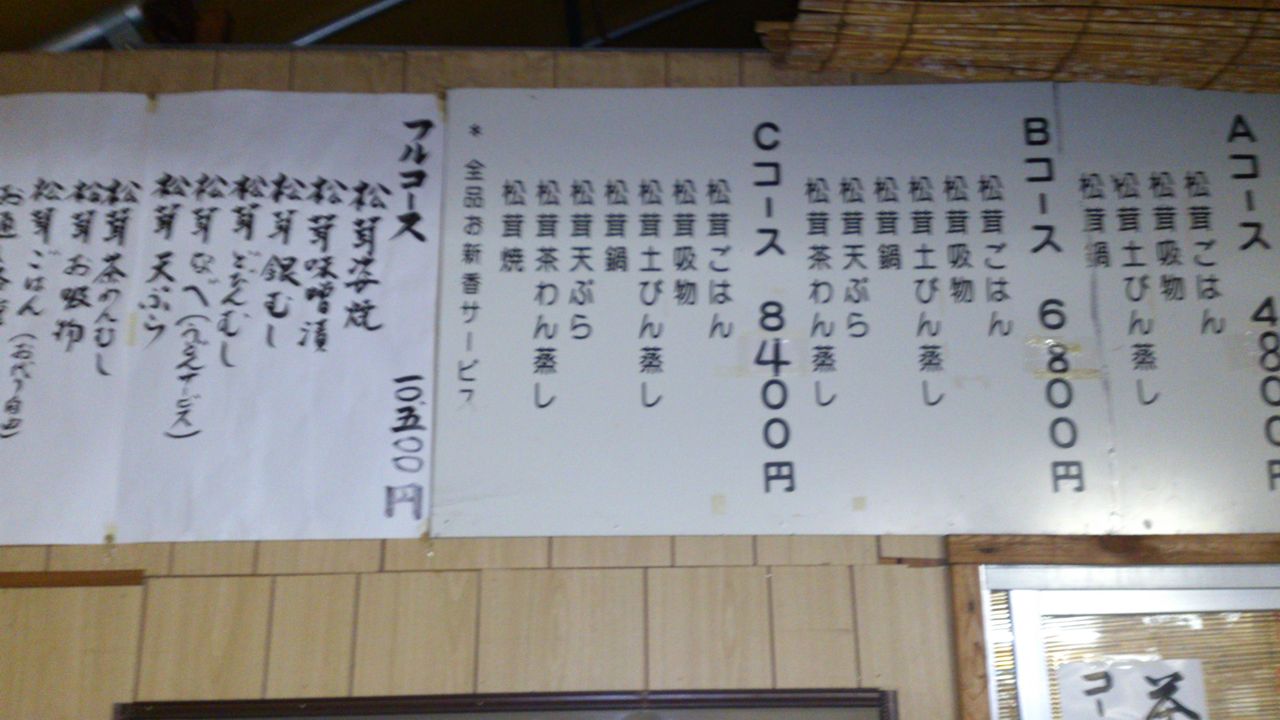 Aコース 4800円
松茸ごはん
松茸吸物
松茸土びん蒸し
松茸鍋
Bコース 6800円
松茸ごはん
松茸吸物
松茸土びん蒸し
松茸鍋
松茸天ぷら
松茸茶わん蒸し
Cコース 8400円
松茸ごはん
松茸吸物
松茸土びん蒸し
松茸鍋
松茸天ぷら
松茸茶わん蒸し
松茸焼
*全品お新香サービス
フルコース 一〇、五〇〇円
松茸姿焼
松茸味噌漬
松茸銀むし
松茸どびんむし
松茸なべ(うどんサービス)
松茸天ぷら
松茸茶わんむし
松茸お吸物
松茸ごはん(おかわり自由)
コー
茶